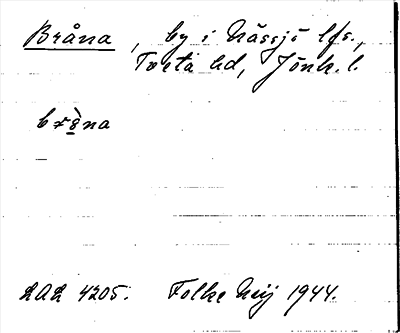 Bråna, by i Nässjö lfs.,
Tveta hd, Jönk. l.
br\u00f2\u0331na
ULA 4205. Folke Meij 1944.